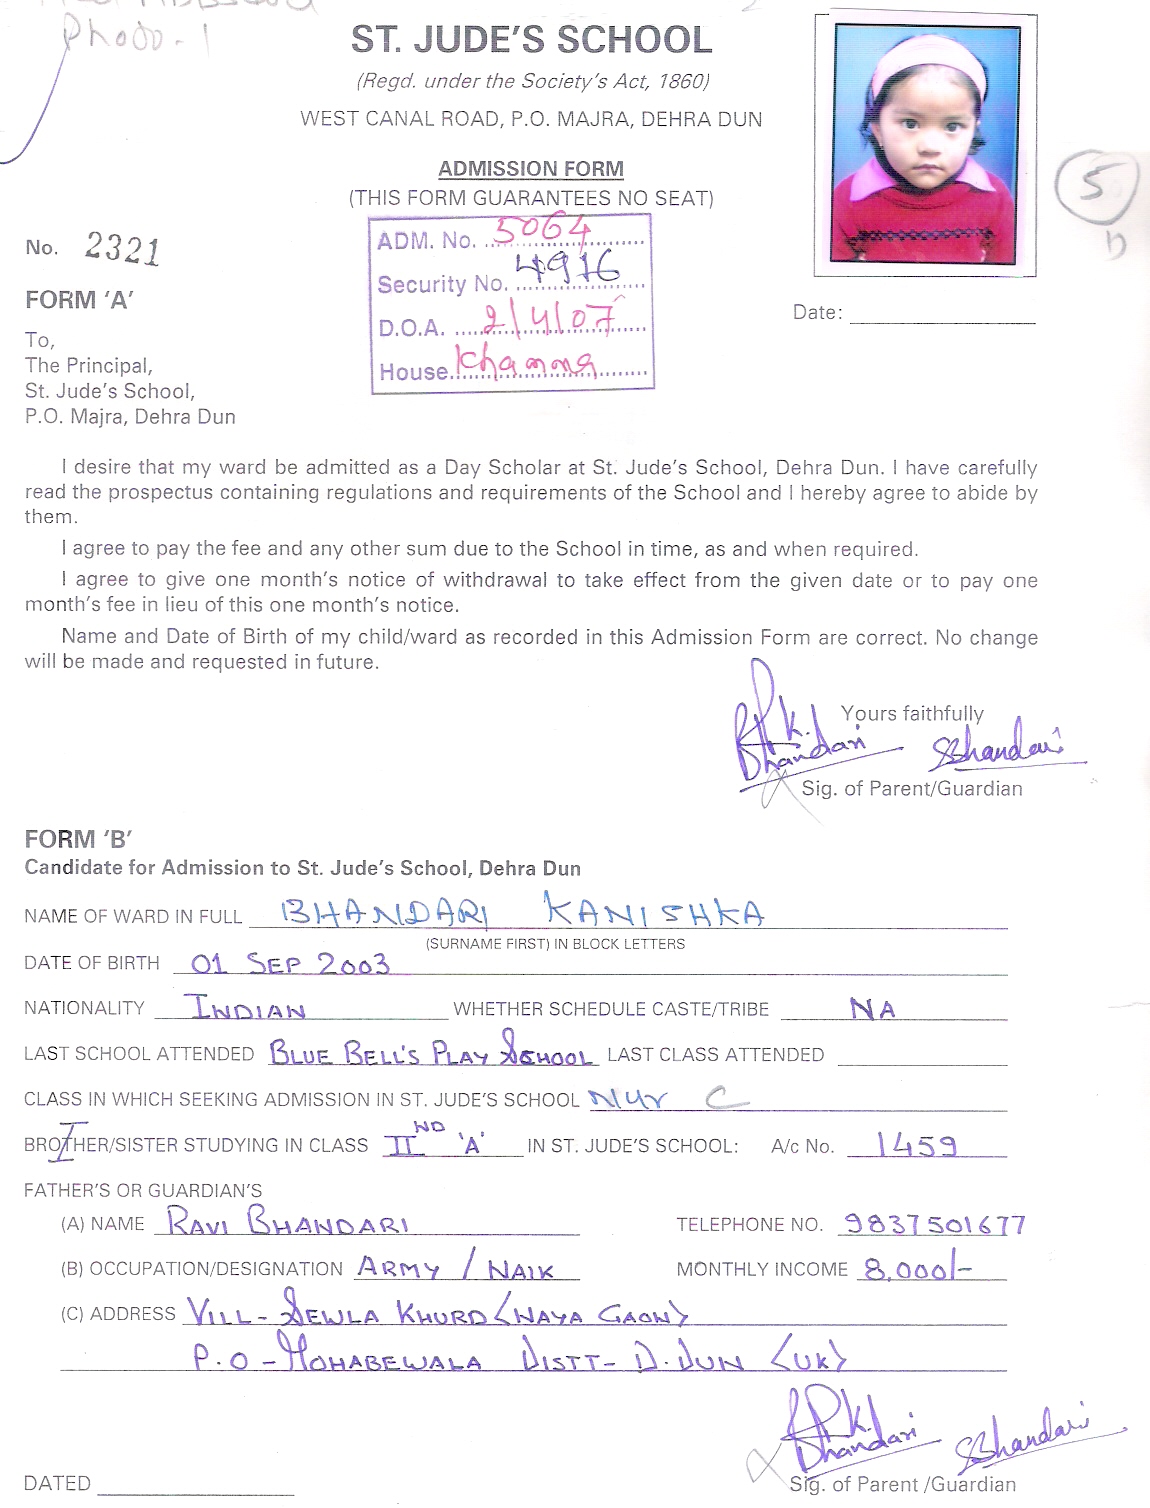 Photo - 1
ST. JUDE'S SCHOOL
(Regd. under the Society's Act, 1860)
WEST CANAL ROAD, P.O. MAJRA, DEHRA DUN
ADMISSION FORM
(THIS FORM GUARANTEES NO SEAT)
5
D
ADM. No. 5064
Security No. 4916
D.O.A. 2/4/07
House Khamma
No. 2321
FORM 'A'
Date:
To,
The Principal,
St. Jude's School,
P.O. Majra, Dehra Dun
I desire that my ward be admitted as a Day Scholar at St. Jude's School, Dehra Dun. I have carefully
read the prospectus containing regulations and requirements of the School and I hereby agree to abide by
them.
I agree to pay the fee and any other sum due to the School in time, as and when required.
I agree to give one month's notice of withdrawal to take effect from the given date or to pay one
month's fee in lieu of this one month's notice.
Name and Date of Birth of my child/ward as recorded in this Admission Form are correct. No change
will be made and requested in future.
Yours faithfully
R.K. Bhandari SBhandari
Sig. of Parent/Guardian
FORM 'B'
Candidate for Admission to St. Jude's School, Dehra Dun
NAME OF WARD IN FULL BHANDARI KANISHKA
(SURNAME FIRST) IN BLOCK LETTERS
DATE OF BIRTH 01 SEP 2003
NATIONALITY INDIAN WHETHER SCHEDULE CASTE/TRIBE NA
LAST SCHOOL ATTENDED BLUE BELL'S PLAY SCHOOL LAST CLASS ATTENDED
CLASS IN WHICH SEEKING ADMISSION IN ST. JUDE'S SCHOOL Nur C
BROTHER/SISTER STUDYING IN CLASS II ND 'A' IN ST. JUDE'S SCHOOL: A/c No. 1459
FATHER'S OR GUARDIAN'S
(A) NAME RAVI BHANDARI TELEPHONE NO. 9837501677
(B) OCCUPATION/DESIGNATION ARMY / NAIK MONTHLY INCOME 8,000/-
(C) ADDRESS VILL - SEWLA KHURD (NAYA GAON)
P.O - MOHABEWALA DISTT - D.DUN (UK)
R.K. Bhandari SBhandari
DATED Sig. of Parent /Guardian